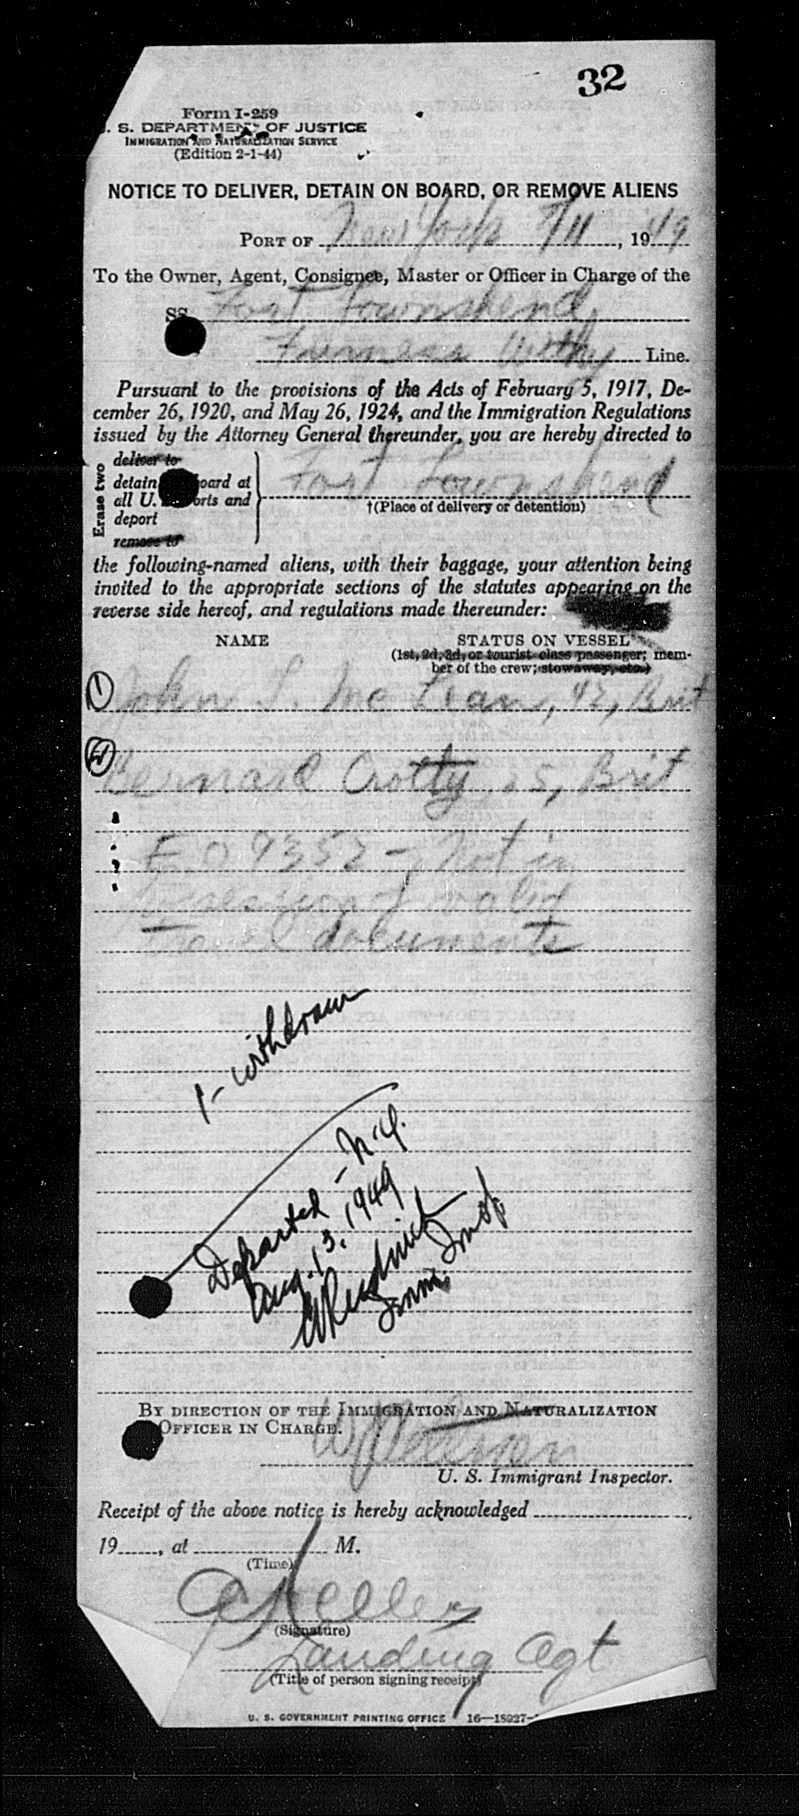 32
Form I-259
U. S. DEPARTMENT OF JUSTICE
IMMIGRATION AND NATURALIZATION SERVICE
(Edition 2-1-44)
NOTICE TO DELIVER, DETAIN ON BOARD, OR REMOVE ALIENS
PORT OF New York 7/11, 1949
To the Owner, Agent, Consignee, Master or Officer in Charge of the
SS Fort Townshend
Furness Withy Line.
Pursuant to the provisions of the Acts of February 5, 1917, De-
cember 26, 1920, and May 26, 1924, and the Immigration Regulations
issued by the Attorney General thereunder, you are hereby directed to
Erase two
deliver to
detain on board at
all U. S. ports and
deport
remove to
Fort Townshend
†(Place of delivery or detention)
the following-named aliens, with their baggage, your attention being
invited to the appropriate sections of the statutes appearing on the
reverse side hereof, and regulations made thereunder:
NAME STATUS ON VESSEL
(1st, 2d, 3d, or tourist class passenger; mem-
ber of the crew; stowaway, etc.)
1 John S. McLean, 42, Brit
Bernard Crotty, 25, Brit
E.O 9352 - Not in
possession of valid
Travel documents
1- withdrawn
Departed - N.Y.
Aug. 13, 1949
Imm. Insp.
BY DIRECTION OF THE IMMIGRATION AND NATURALIZATION
OFFICER IN CHARGE.
U. S. Immigrant Inspector.
Receipt of the above notice is hereby acknowledged
19, at M.
(Time)
Keller
(Signature)
Landing Agt
(Title of person signing receipt)
U. S. GOVERNMENT PRINTING OFFICE 16—18927-